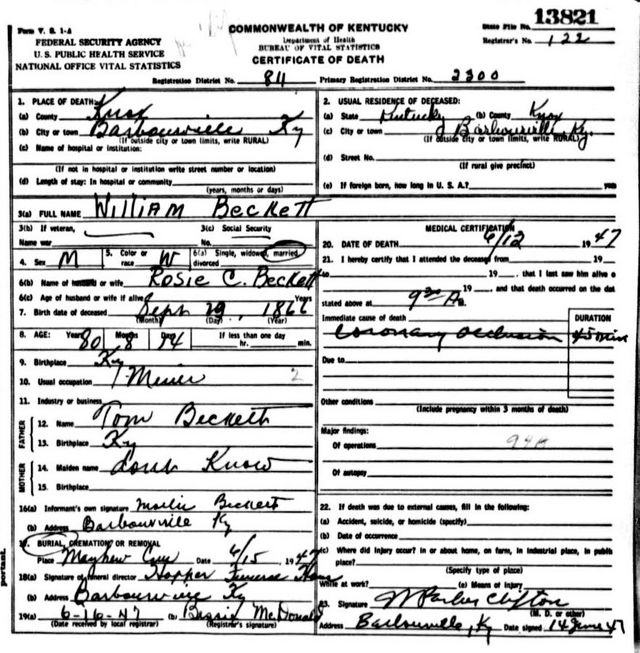 Form V. S. 1-A
FEDERAL SECURITY AGENCY
U. S. PUBLIC HEALTH SERVICE
NATIONAL OFFICE VITAL STATISTICS
COMMONWEALTH OF KENTUCKY
Department of Health
BUREAU OF VITAL STATISTICS
CERTIFICATE OF DEATH
State File No. 13821
Registrar's No. 122
Registration District No. 84 Primary Registration District No. 2300
1. PLACE OF DEATH:
(a) County Knox
(b) City or town Barbourville Ky
(If outside city or town limits, write RURAL)
(c) Name of hospital or institution:
(If not in hospital or institution write street number or location)
(d) Length of stay: In hospital or community
(years, months or days)
2. USUAL RESIDENCE OF DECEASED:
(a) State Kentucky (b) County Knox
(c) City or town Barbourville, Ky.
(If outside city or town limits, write RURAL)
(d) Street No.
(If rural give precinct)
(e) If foreign born, how long in U. S. A.? years
3(a) FULL NAME William Beckett
3(b) If veteran,
Name war
3(c) Social Security
No.
4. Sex M
5. Color or race W
6(a) Single, widowed, married, divorced
6(b) Name of husband or wife Rosie C. Beckett
6(c) Age of husband or wife if alive Years
7. Birth date of deceased Sept 29, 1866
(Month) (Day) (Year)
8. AGE: Years 80 Months 8 Days 14 If less than one day
hr. min.
9. Birthplace Ky
10. Usual occupation Miner 2
11. Industry or business
FATHER
12. Name Tom Beckett
13. Birthplace Ky
MOTHER
14. Maiden name Know
15. Birthplace
16(a) Informant's own signature Beckett
(b) Address Barbourville Ky
17. BURIAL, CREMATION, OR REMOVAL
Place Mayhew Cem Date 6/15, 1947
18(a) Signature of funeral director Hopper Funeral Home
(b) Address Barbourville Ky
19(a) 6-16-47 (b) Bessie McDonald
(Date received by local registrar) (Registrar's signature)
MEDICAL CERTIFICATION
20. DATE OF DEATH 6/12 1947
21. I hereby certify that I attended the deceased from 19
to 19, that I last saw him alive on
19, and that death occurred on the date
stated above at 9 30 A
Immediate cause of death
DURATION
Coronary occlusion 45 min
Due to
Other conditions
(Include pregnancy within 3 months of death)
Major findings:
Of operations 94a
Of autopsy
22. If death was due to external causes, fill in the following:
(a) Accident, suicide, or homicide (specify)
(b) Date of occurrence
(c) Where did injury occur? In or about home, on farm, in industrial place, in public
place?
(Specify type of place)
While at work? (e) Means of injury
23. Signature Parker Clifton
(M. D. or other)
Address Barbourville, Ky Date signed 14 June 47
portant.